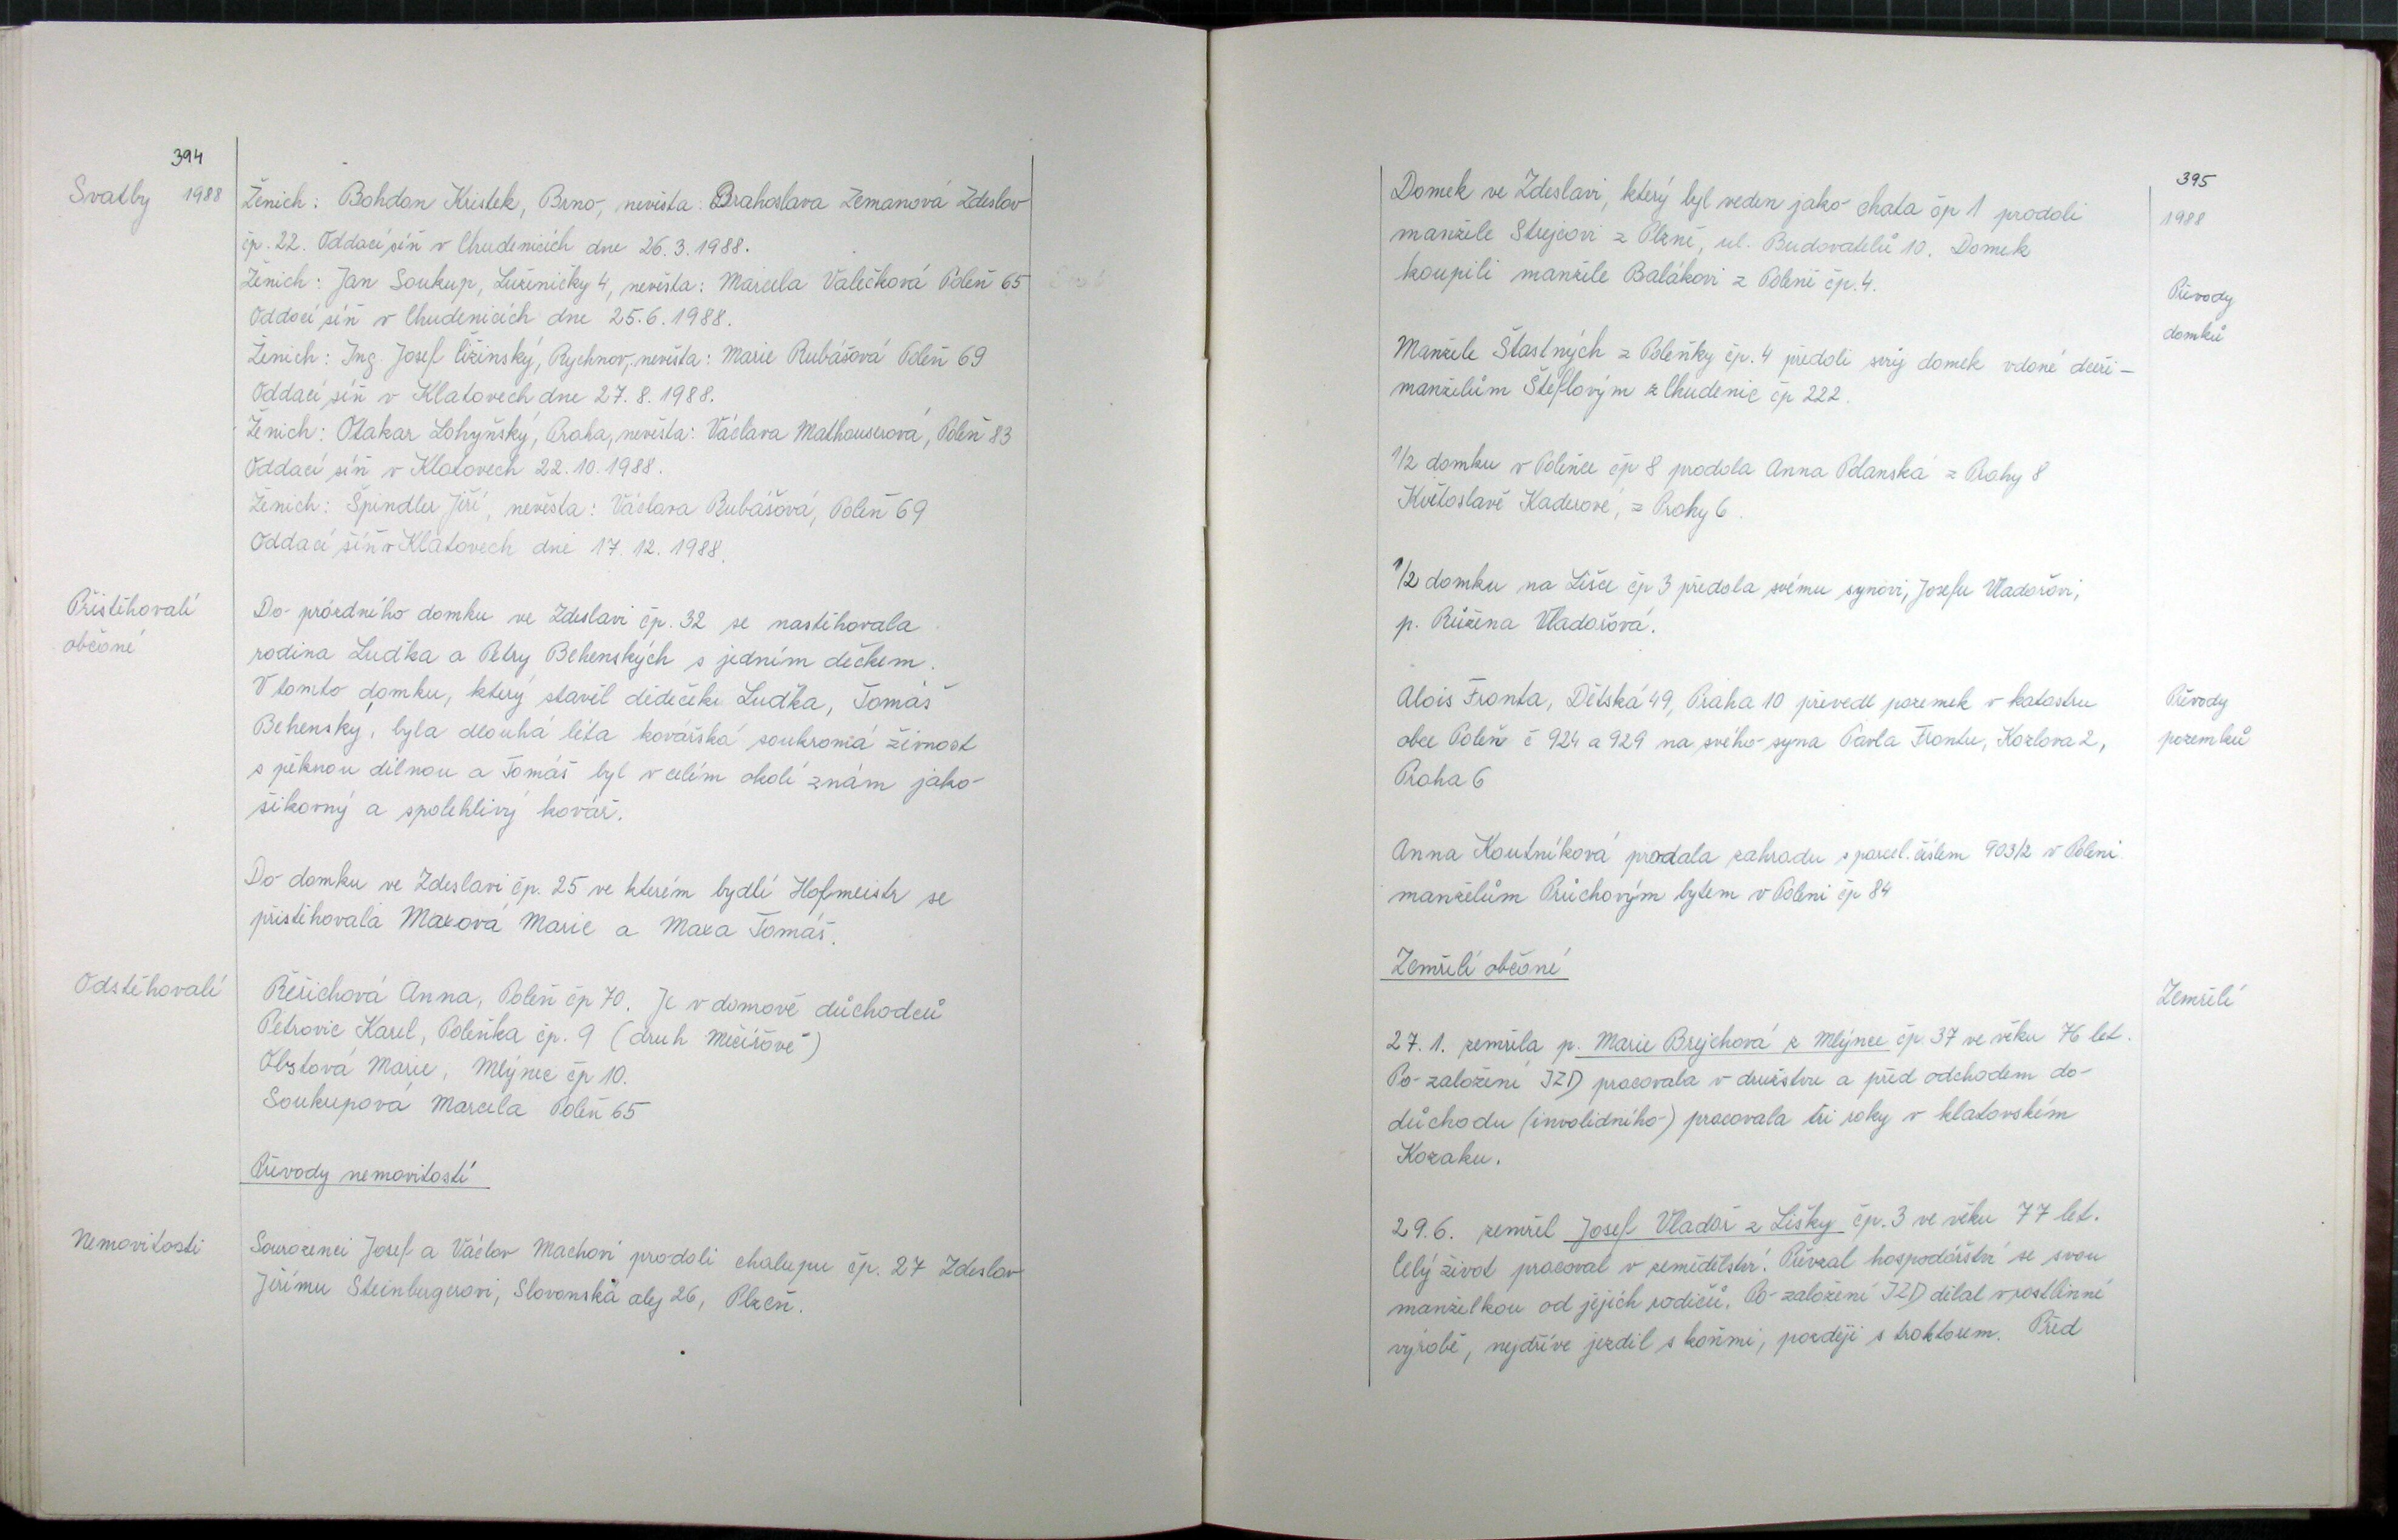 394
Svatby 1988
Ženich: Bohdan Kristek, Brno, nevěsta: Drahoslava Zemanová Zdeslav
čp. 22. Oddací síň v Chudenicích dne 26.3.1988.
Ženich: Jan Soukup, Luženičky 4, nevěsta: Marcela Valečková Poleň 65
Oddací síň v Chudenicích dne 25.6.1988.
Ženich: Ing. Josef Ližinský, Rychnov, nevěsta: Marie Rubášová Poleň 69
Oddací síň v Klatovech dne 27.8.1988.
Ženich: Otakar Lohyňský, Praha, nevěsta: Václava Mathauserová, Poleň 83
Oddací síň v Klatovech 22.10.1988.
Ženich: Špindler Jiří, nevěsta: Václava Rubášová, Poleň 69
Oddací síň v Klatovech dne 17.12.1988.
Přistěhovalí
občané
Do prázdného domku ve Zdeslavi čp. 32 se nastěhovala
rodina Luďka a Petry Behenských s jedním děckem.
V tomto domku, který stavěl dědeček Luďka, Tomáš
Behenský, byla dlouhá léta kovářská soukromá živnost
s pěknou dílnou a Tomáš byl v celém okolí znám jako
šikovný a spolehlivý kovář.
Do domku ve Zdeslavi čp. 25 ve kterém bydlí Hofmeistr se
přistěhovala Maxová Marie a Maxa Tomáš.
Odstěhovalí
Řeřichová Anna, Poleň čp 70. Je v domově důchodců
Petrovic Karel, Poleňka čp. 9 (druh Mečířové)
Obstová Marie, Mlýnec čp 10.
Soukupová Marcela Poleň 65
Převody nemovitostí
Nemovitosti
Sourozenci Josef a Václav Machovi prodali chalupu čp. 27 Zdeslav
Jiřímu Steinbergerovi, Slovanská alej 26, Plzeň.
395
1988
Domek ve Zdeslavi, který byl veden jako chata čp 1 prodali
manželé Strejcovi z Plzně, ul. Budovatelů 10. Domek
koupili manželé Balákovi z Poleně čp. 4.
Převody
domků
Manželé Šťastných z Poleňky čp. 4 předali svůj domek vdané dceři –
manželům Šteflovým z Chudenic čp 222.
1/2 domku v Poleňce čp 8 prodala Anna Polanská z Prahy 8
Květoslavě Kaderové, z Prahy 6.
1/2 domku na Lišce čp 3 předala svému synovi, Josefu Vladařovi,
p. Růžena Vladařová.
Převody
pozemků
Alois Fronta, Dětská 49, Praha 10 převedl pozemek v katastru
obce Poleň č 924 a 929 na svého syna Pavla Frontu, Kozlova 2,
Praha 6
Anna Koutníková prodala zahradu s parcel. číslem 903/2 v Poleni
manželům Průchovým bytem v Poleni čp 84
Zemřelí občané
Zemřelí
27.1. zemřela p. Marie Brejchová z Mlýnce čp. 37 ve věku 76 let.
Po založení JZD pracovala v družstvu a před odchodem do
důchodu (invalidního) pracovala tři roky v klatovském
Kozaku.
29.6. zemřel Josef Vladař z Lišky čp. 3 ve věku 77 let.
Celý život pracoval v zemědělství. Převzal hospodářství se svou
manželkou od jejích rodičů. Po založení JZD dělal v rostlinné
výrobě, nejdříve jezdil s koňmi, později s traktorem. Před